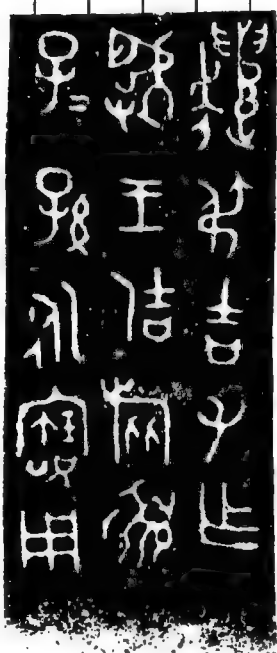 遣弔吉父乍
虢王姞旅盨
子=孫永寶用